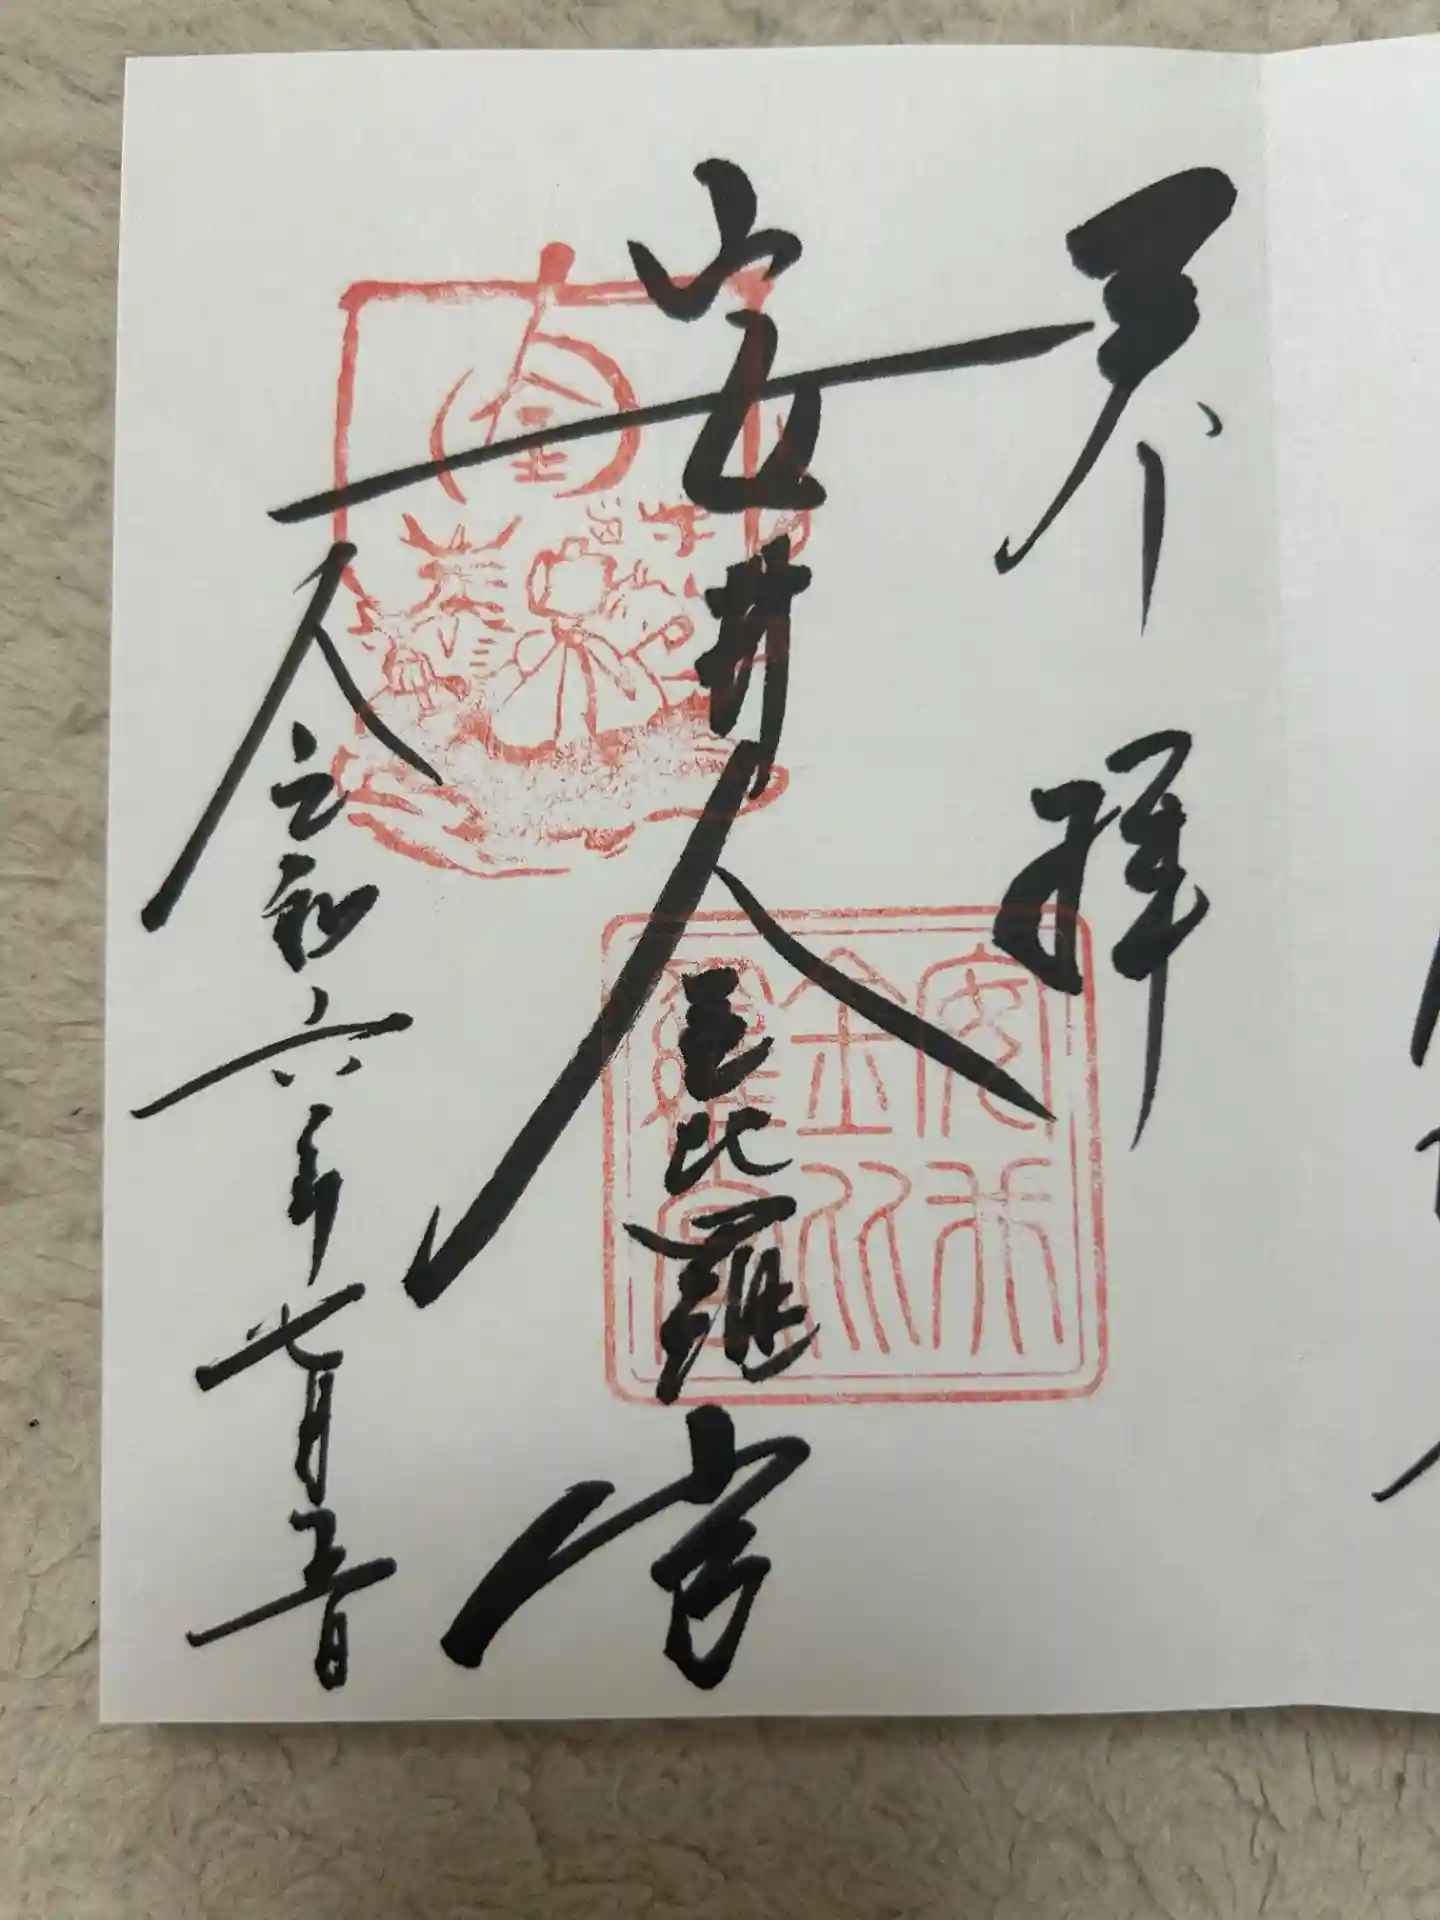 奉拝
安井金比羅宮
令和六年七月五日
安井
金比
羅宮